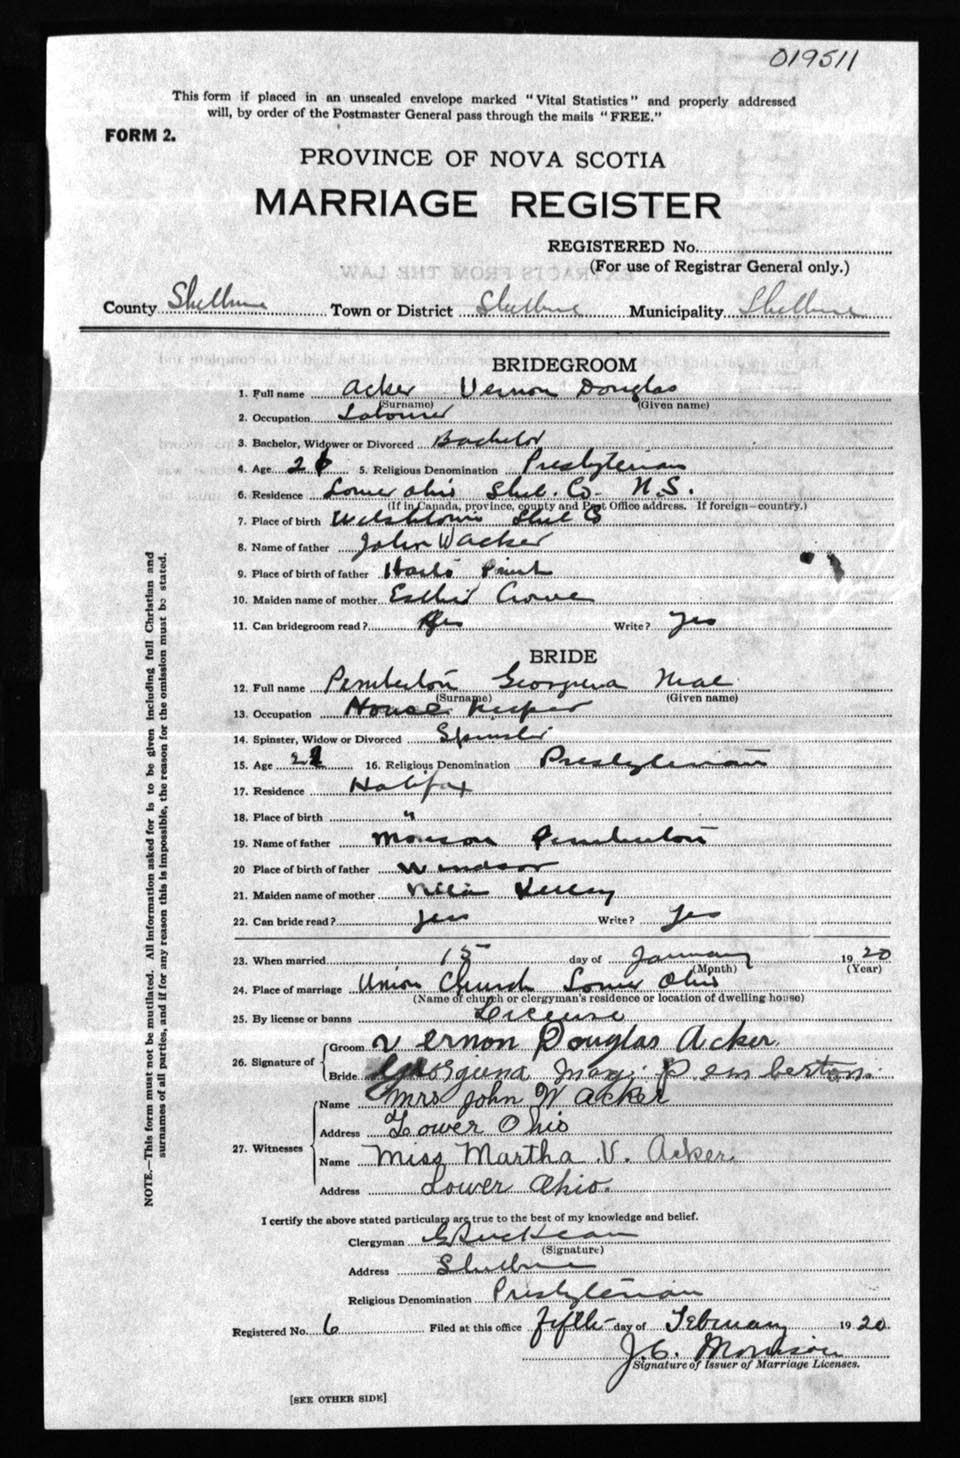 019511
This form if placed in an unsealed envelope marked "Vital Statistics" and properly addressed
will, by order of the Postmaster General pass through the mails "FREE."
FORM 2.
PROVINCE OF NOVA SCOTIA
MARRIAGE REGISTER
REGISTERED No.
(For use of Registrar General only.)
County Shelburne Town or District Shelburne Municipality Shelburne
BRIDEGROOM
1. Full name Acker Vernon Douglas
(Surname) (Given name)
2. Occupation Labourer
3. Bachelor, Widower or Divorced Bachelor
4. Age 26 5. Religious Denomination Presbyterian
6. Residence Lower Ohio Shel. Co. N.S.
(If in Canada, province, county and Post Office address. If foreign—country.)
7. Place of birth Welshtown Shel Co
8. Name of father John W Acker
9. Place of birth of father Point
10. Maiden name of mother Esther Crowe
11. Can bridegroom read? Yes Write? Yes
BRIDE
12. Full name Pemberton Georgiena Mae
(Surname) (Given name)
13. Occupation House Keeper
14. Spinster, Widow or Divorced Spinster
15. Age 21 16. Religious Denomination Presbyterian
17. Residence Halifax
18. Place of birth "
19. Name of father Pemberton
20 Place of birth of father Windsor
21. Maiden name of mother
22. Can bride read? Yes Write? Yes
23. When married 15 day of January 1920
(Month) (Year)
24. Place of marriage Union Church Lower Ohio
(Name of church or clergyman's residence or location of dwelling house)
25. By license or banns License
26. Signature of Groom Vernon Douglas Acker.
Bride Georguna May Pemberton.
27. Witnesses Name Mrs John W Acker
Address Lower Ohio
Name Miss Martha V. Acker.
Address Lower Ohio.
I certify the above stated particulars are true to the best of my knowledge and belief.
Clergyman
(Signature)
Address Shelburne
Religious Denomination Presbyterian
Registered No. 6 Filed at this office fifth day of February 1920.
J.C. Morrison
Signature of Issuer of Marriage Licenses.
[SEE OTHER SIDE]
NOTE.—This form must not be mutilated. All information asked for is to be given including full Christian and
surnames of all parties, and if for any reason this is impossible, the reason for the omission must be stated.